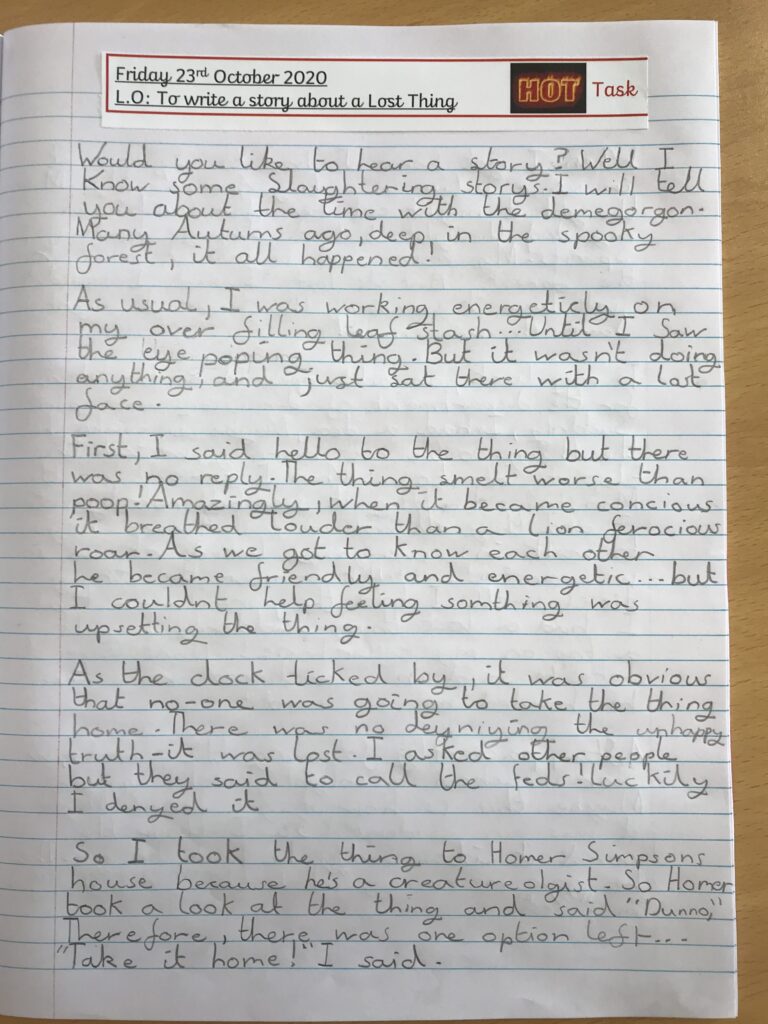 Friday 23rd October 2020
L.O: To write a story about a Lost Thing
HOT Task
Would you like to hear a story? Well I
Know some Slaughtering storys. I will tell
you about the time with the demegorgon.
Many Autums ago, deep, in the spooky
forest, it all happened!
As usual, I was working energeticly on
my over filling leaf stash... Until I saw
the eye poping thing. But it wasn't doing
anything, and just sat there with a lost
face.
First, I said hello to the thing but there
was no reply. The thing smelt worse than
poop! Amazingly, when it became concious
it breathed louder than a lion ferocious
roar. As we got to know each other
he became friendly and energetic... but
I couldnt help feeling somthing was
upsetting the thing.
As the clock ticked by, it was obvious
that no-one was going to take the thing
home. There was no deyniying the unhappy
truth - it was lost. I asked other people
but they said to call the feds! Luckily
I denyed it
So I took the thing to Homer Simpsons
house because he's a creatureolgist. So Homer
took a look at the thing and said "Dunno,"
Therefore, there was one option left...
"Take it home!" I said.